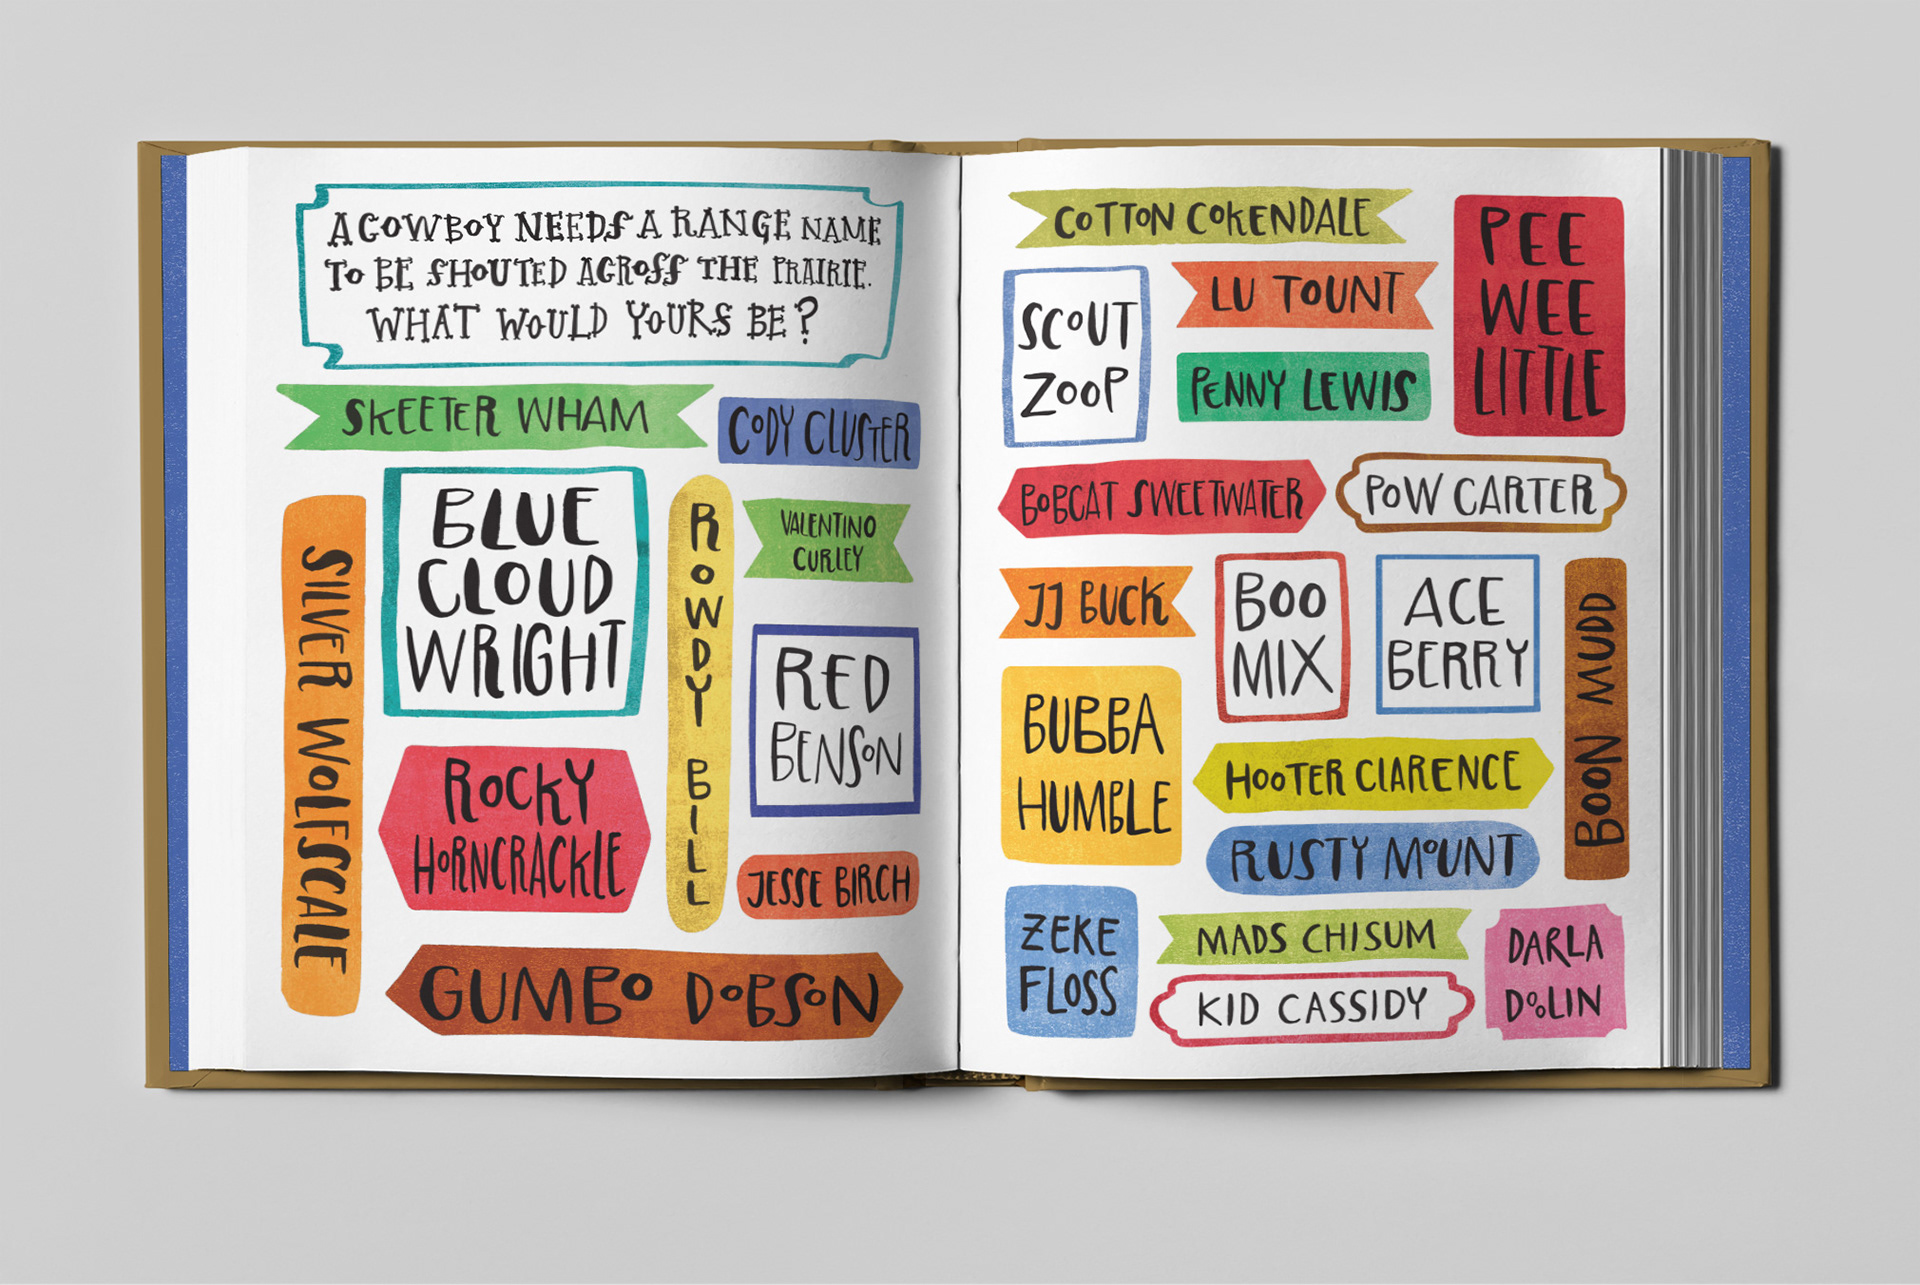 A COWBOY NEEDS A RANGE NAME
TO BE SHOUTED ACROSS THE PRAIRIE.
WHAT WOULD YOURS BE?
SKEETER WHAM
CODY CLUSTER
SILVER WOLFSCALE
BLUE
CLOUD
WRIGHT
ROWDY BILL
VALENTINO
CURLEY
RED
BENSON
ROCKY
HORNCRACKLE
JESSE BIRCH
GUMBO DOBSON
COTTON COKENDALE
PEE
WEE
LITTLE
SCOUT
ZOOP
LU TOUNT
PENNY LEWIS
BOBCAT SWEETWATER
POW CARTER
JJ BUCK
BOO
MIX
ACE
BERRY
BOON MUDD
BUBBA
HUMBLE
HOOTER CLARENCE
RUSTY MOUNT
ZEKE
FLOSS
MADS CHISUM
KID CASSIDY
DARLA
DOOLIN